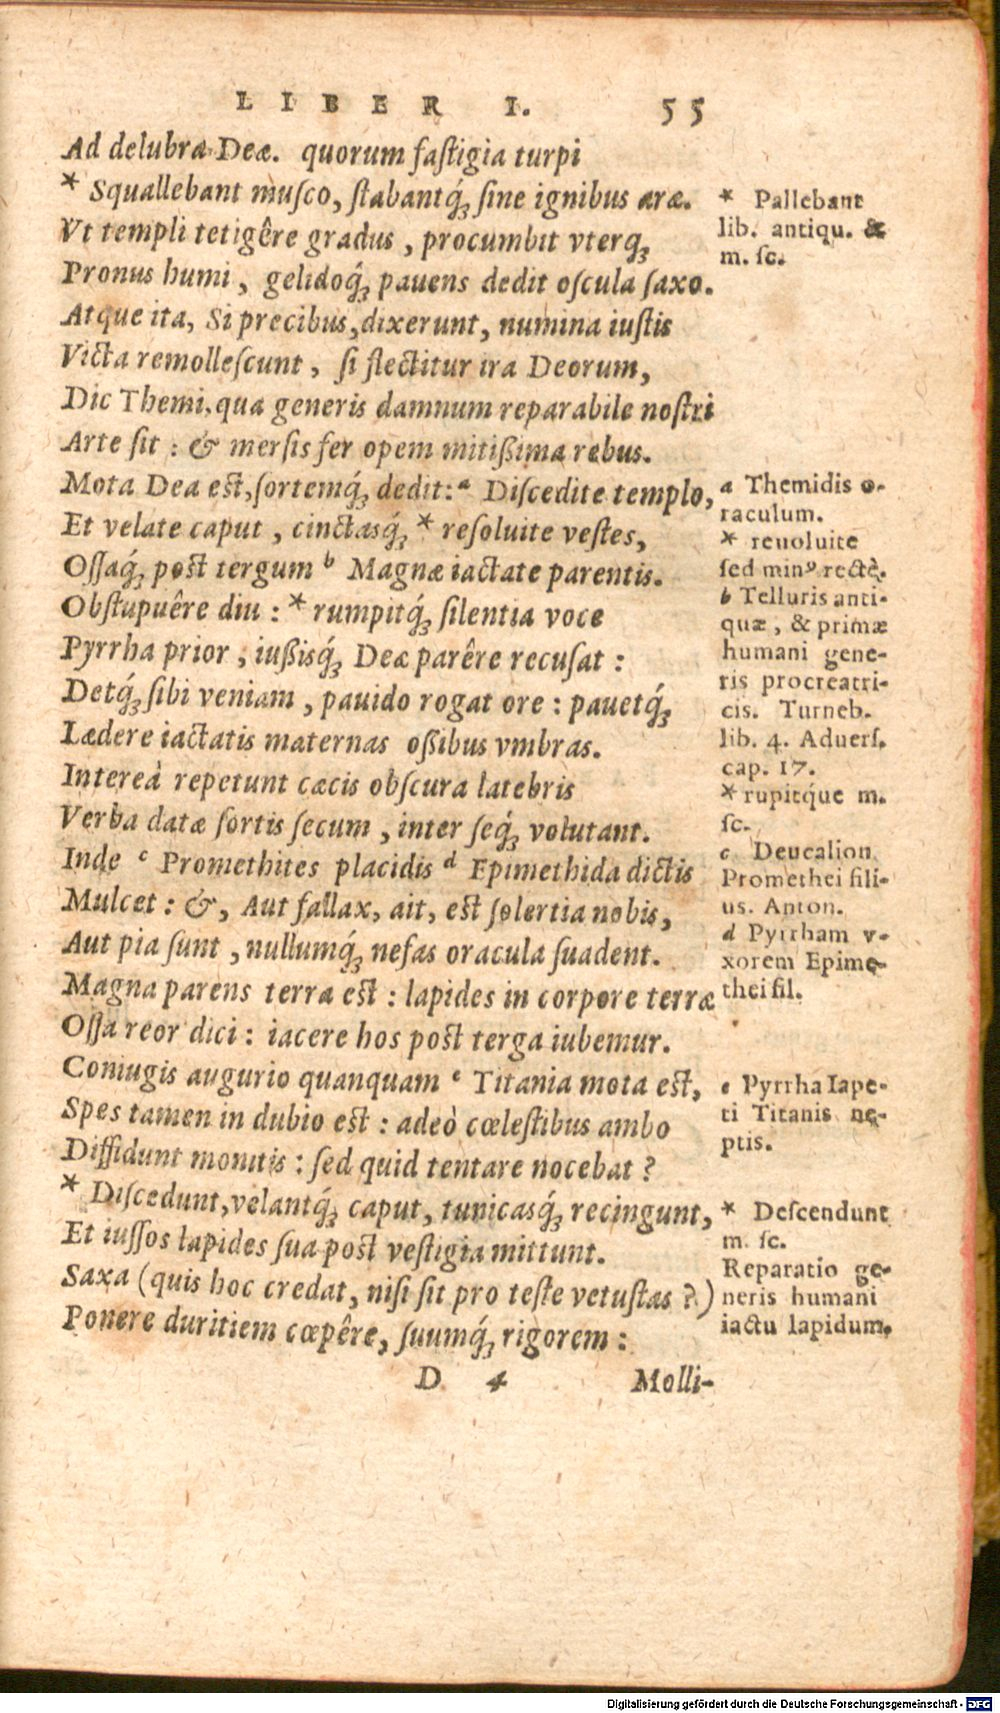 LIBER I. 55
Ad delubra Deæ. quorum faſtigia turpi
* Squallebant muſco, ſtabantq́ꝫ ſine ignibus aræ.
Vt templi tetigêre gradus, procumbit vterqꝫ
Pronus humi, gelidoq́ꝫ pauens dedit oſcula ſaxo.
Atque ita, Si precibus, dixerunt, numina iuſtis
Victa remolleſcunt, ſi flectitur ira Deorum,
Dic Themi, qua generis damnum reparabile noſtri
Arte ſit: & merſis fer opem mitißima rebus.
Mota Dea eſt, ſortemq́ꝫ dedit: a Diſcedite templo,
Et velate caput, cinctasq́ꝫ * reſoluite veſtes,
Oſſaq́ꝫ poſt tergum b Magnæ iactate parentis.
Obſtupuêre diu: * rumpitq́ꝫ ſilentia voce
Pyrrha prior, iußisq́ꝫ Deæ parêre recuſat:
Detq́ꝫ ſibi veniam, pauido rogat ore: pauetq́ꝫ
Lædere iactatis maternas oßibus vmbras.
Intereà repetunt cæcis obſcura latebris
Verba datæ ſortis ſecum, inter ſeq́ꝫ volutant.
Inde c Promethites placidis d Epimethida dictis
Mulcet: &, Aut fallax, ait, eſt ſolertia nobis,
Aut pia ſunt, nullumq́ꝫ nefas oracula ſuadent.
Magna parens terra eſt: lapides in corpore terræ
Oſſa reor dici: iacere hos poſt terga iubemur.
Coniugis augurio quanquam e Titania mota eſt,
Spes tamen in dubio eſt: adeò cœleſtibus ambo
Diffidunt monitis: ſed quid tentare nocebat?
* Diſcedunt, velantq́ꝫ caput, tunicasq́ꝫ recingunt,
Et iuſſos lapides ſua poſt veſtigia mittunt.
Saxa (quis hoc credat, niſi ſit pro teſte vetuſtas?)
Ponere duritiem cœpêre, ſuumq́ꝫ rigorem:
D 4 Molli-
* Pallebant
lib. antiqu. &
m. ſc.
a Themidis o-
raculum.
* reuoluite
ſed minꝰ rectè.
b Telluris anti-
quæ, & primæ
humani gene-
ris procreatri-
cis. Turneb.
lib. 4. Aduerſ.
cap. 17.
* rupitq́ue m.
ſc.
c Deucalion
Promethei fili-
us. Anton.
d Pyrrham v-
xorem Epime-
thei fil.
e Pyrrha Iape-
ti Titanis ne-
ptis.
* Deſcendunt
m. ſc.
Reparatio ge-
neris humani
iactu lapidum.
Digitalisierung gefördert durch die Deutsche Forschungsgemeinschaft - DFG